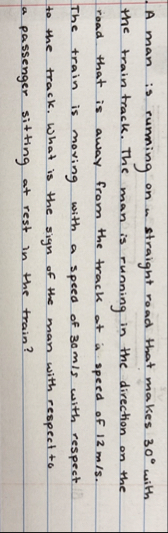 . A man is running on a straight road that makes 30° with
the train track. The man is running in the direction on the
road that is away from the track at a speed of 12 m/s.
The train is moving with a speed of 30 m/s with respect
to the track. What is the sign of the man with respect to
a passenger sitting at rest in the train?